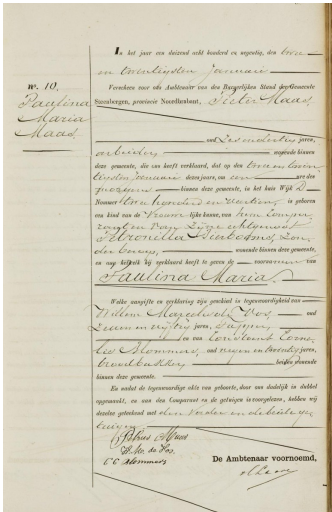 In het jaar een duizend acht honderd en negentig, den twee
en twintigsten Januari
No. 10.
Verscheen voor ons Ambtenaar van den Burgerlijken Stand der Gemeente
Paulina
Maria
Maas
Steenbergen, provincie Noordbrabant, Pieter Maas,
oud zes en dertig jaren,
arbeider, wonende binnen
deze gemeente, die ons heeft verklaard, dat op den twee en twin
tigsten Januari dezes jaars, om een ure des
morgens binnen deze gemeente, in het huis Wijk D
Nommer twee honderd en dertien, is geboren
een kind van de Vrouwelijke kunne, van hem Compa
rant en van zijne echtgenoot
Petronilla, zon
der beroep, wonende binnen deze gemeente,
en aan hetwelk hij verklaard heeft te geven de voornamen van
Paulina Maria.
Welke aangifte en verklaring zijn geschied in tegenwoordigheid van
Willem Marcelis de Vos, oud
zeven en vijftig jaren,
en van Constant Corne
lis Blommers, oud negen en twintig jaren,
broodbakker, beiden wonende
binnen deze gemeente.
En omdat de tegenwoordige akte van geboorte, door ons dadelijk in dubbel
opgemaakt, en aan den Comparant en de getuigen is voorgelezen, hebben wij
dezelve geteekend met den Vader en de beide ge
tuigen.
Petrus Maas
W. M. de Vos
C C Blommers
De Ambtenaar voornoemd,